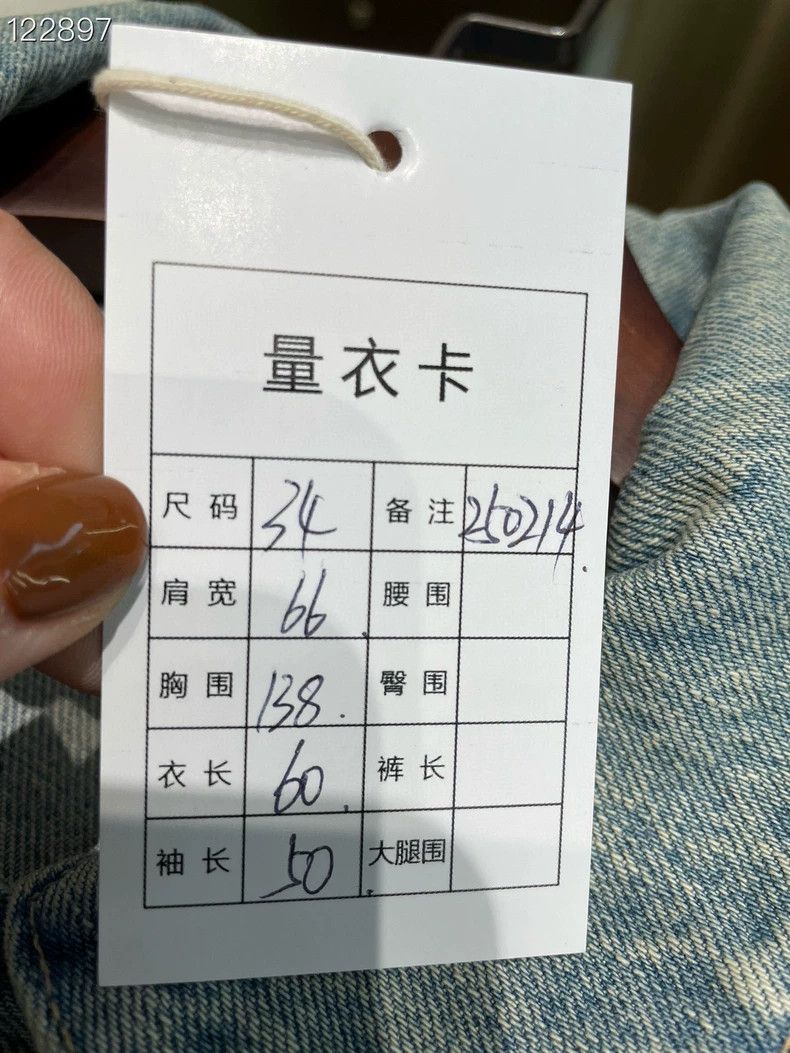 122897
量衣卡
尺码 34 备注 250214
肩宽 66 腰围
胸围 138 臀围
衣长 60 裤长
袖长 50 大腿围